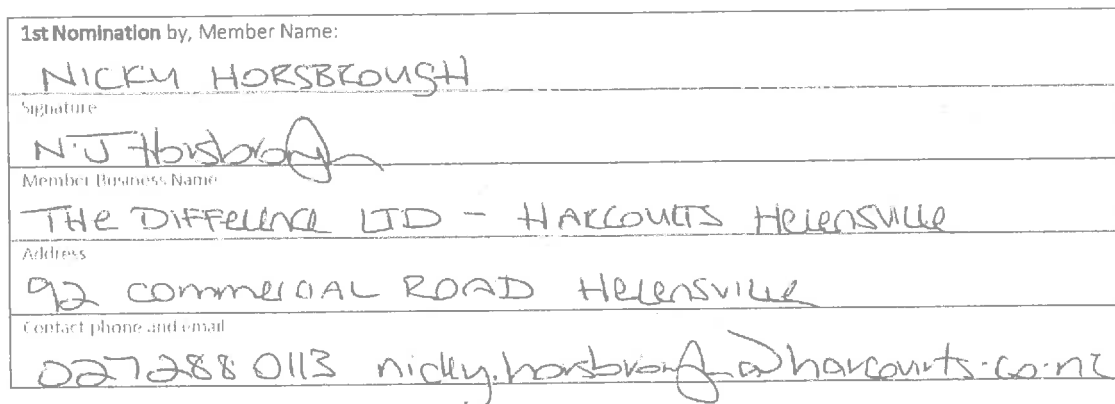 1st Nomination by, Member Name:
NICKY HORSBROUGH
Signature
N.J Horsbrough
Member Business Name
THE DIFFERENCE LTD - HARCOURTS HELENSVILLE
Address
92 COMMERCIAL ROAD HELENSVILLE
Contact phone and email
027 288 0113 nicky.horsbrough@harcourts.co.nz